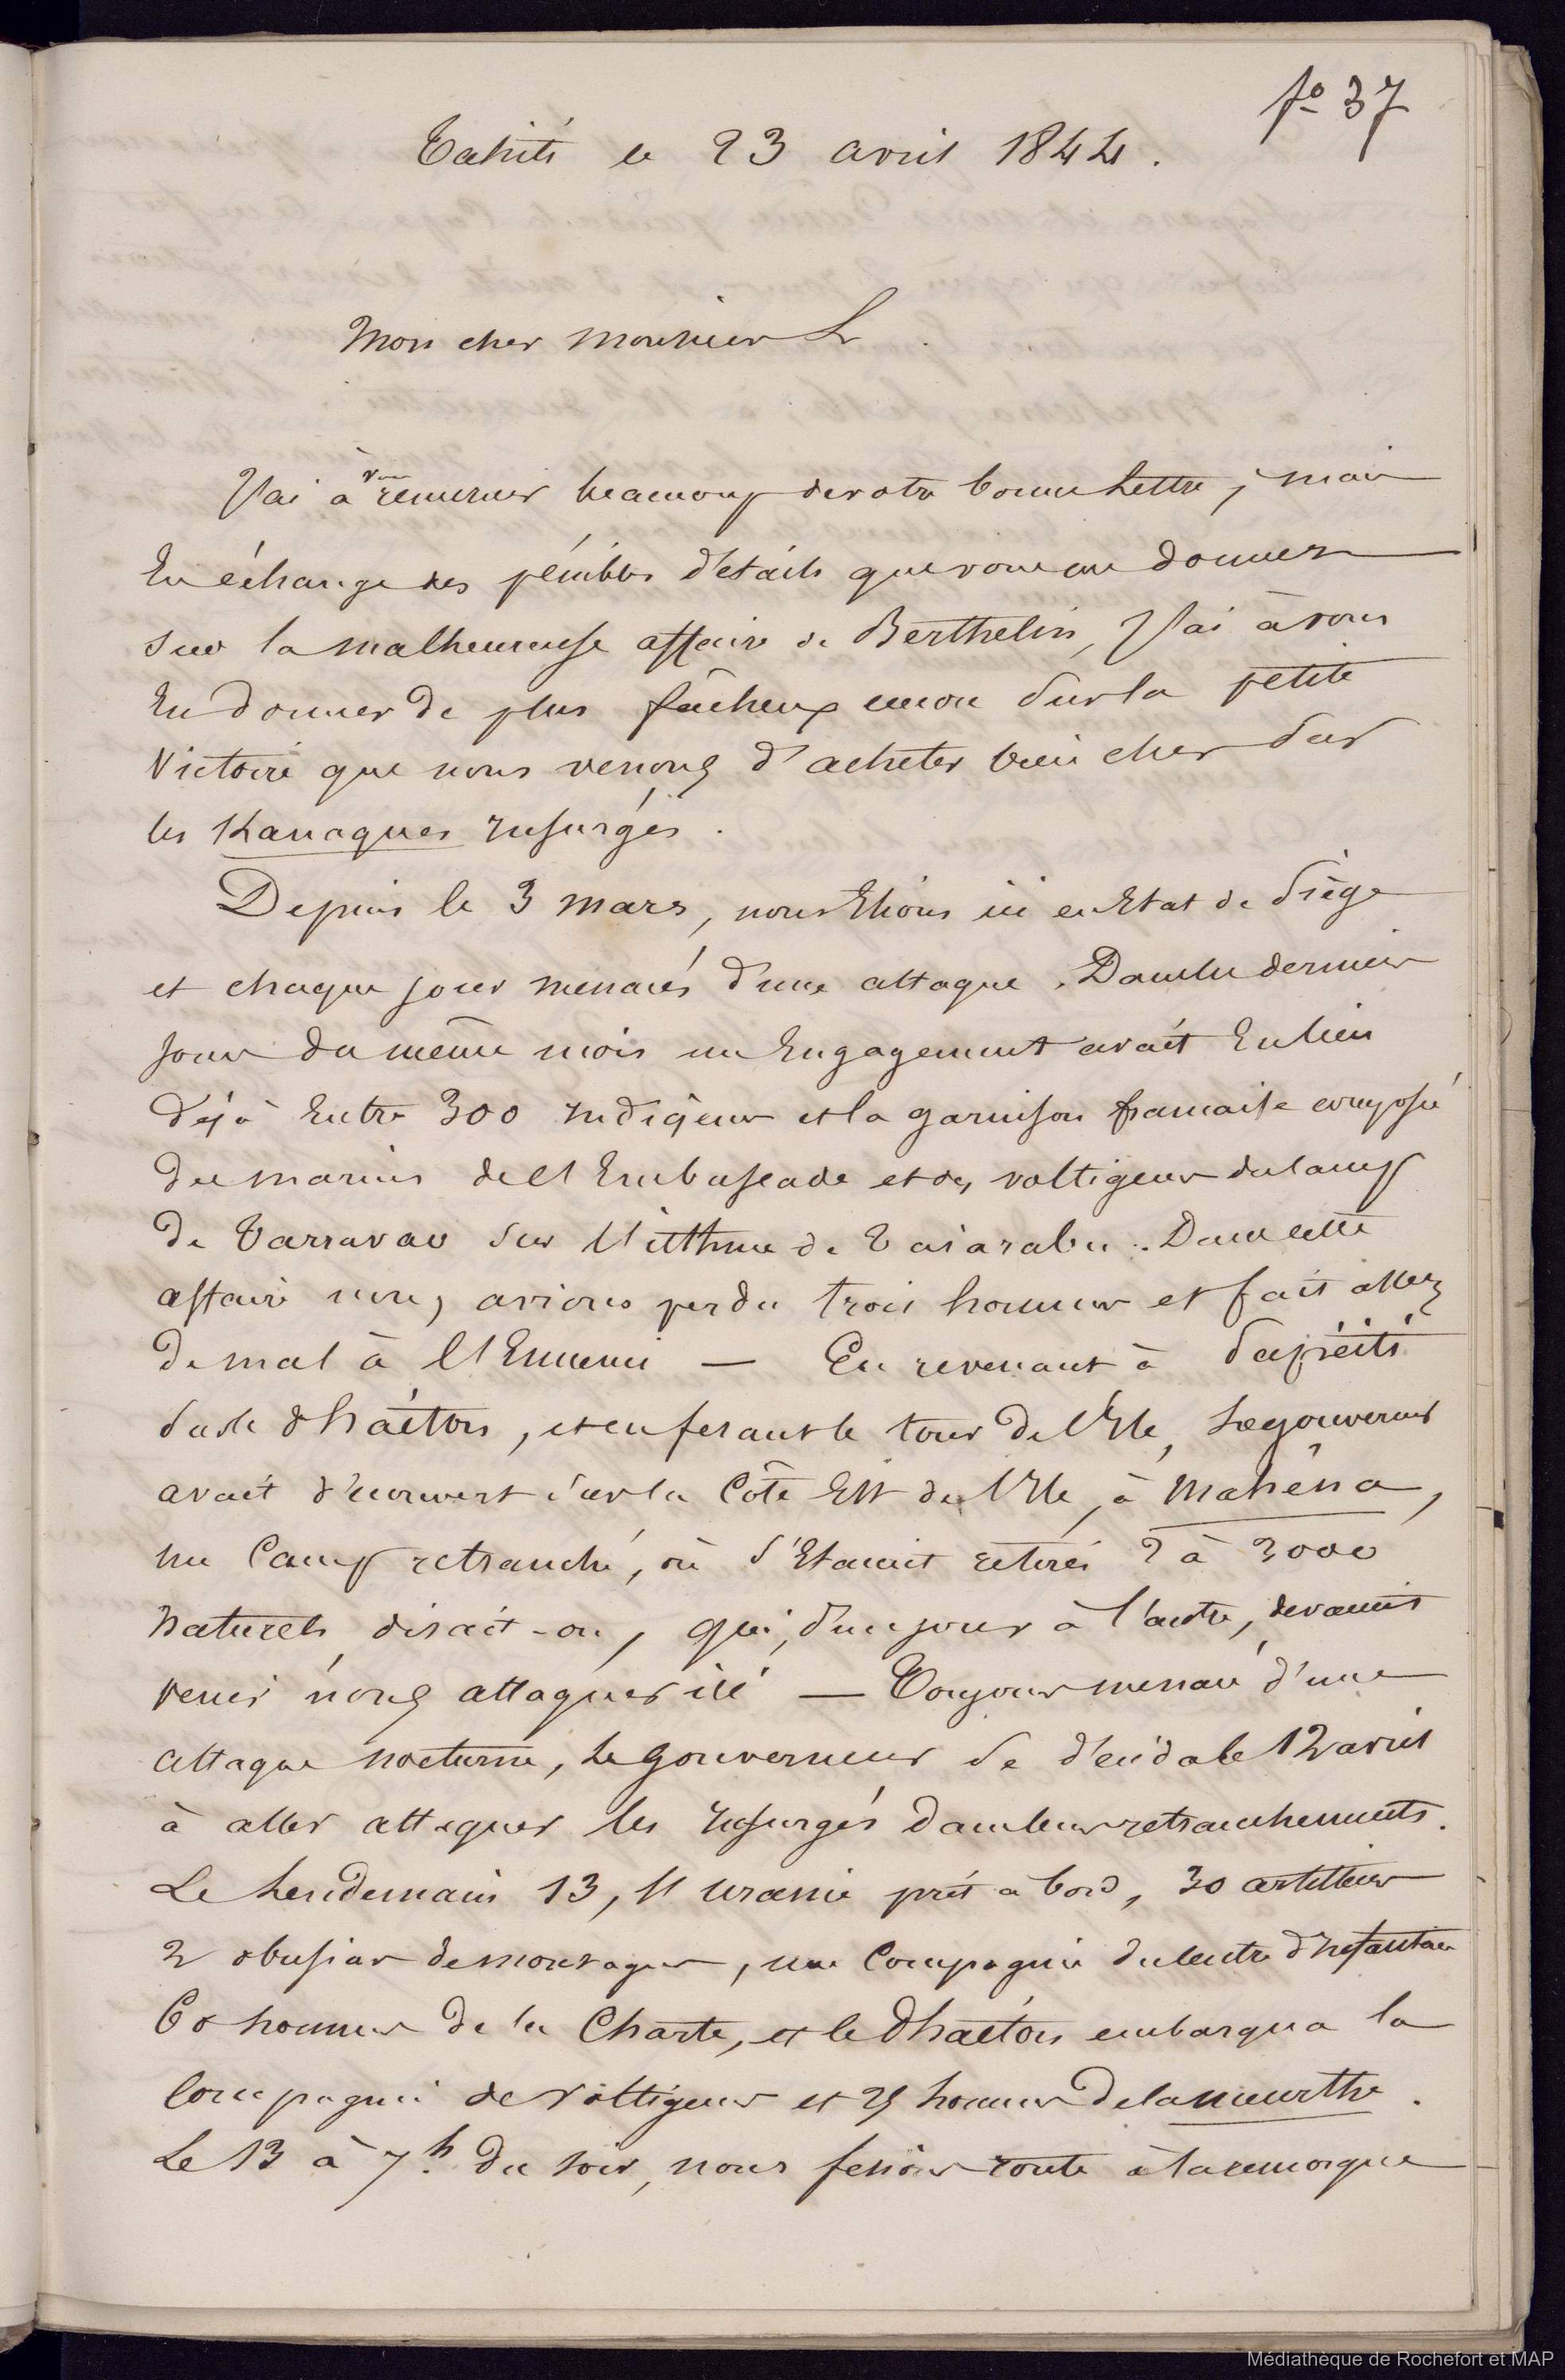 fo 37
Tahiti le 23 avril 1844.
Mon cher monsieur L
J'ai à vous remercier beaucoup de votre bonne Lettre, mais
En échange des pénibles détails que vous me donnez
sur la malheureuse affaire de Berthelin, J'ai à vous
En donner de plus fâcheux encore sur la petite
Victoire que nous venons d'acheter bien cher sur
les Kanaques Insurgés.
Depuis le 3 mars, nous Etions ici en Etat de siège
et chaque jour menacés d'une attaque. Dans les derniers
jours du même mois un Engagement avait Eu lieu
déjà Entre 300 Indigènes et la garnison française composée
des marins de l'Embuscade et des voltigeurs du camp
de Tarravao sur l'isthme de Taiarabu. Dans cette
affaire nous avions perdu trois hommes et fait assez
de mal à l'Ennemi — En revenant à Papéiti
sur le Phaéton, et en fesant le tour de l'Ile, Le gouverneur
avait découvert sur la Côte Est de l'Ile, à Mahéna,
un Camp retranché, où s'Etaient retirés 2 à 3000
naturels disait-on, qui, d'un jour à l'autre, devaient
venir nous attaquer ici — Toujours menacé d'une
attaque nocturne, Le gouverneur se décida le 12 avril
à aller attaquer les Insurgés dans leurs retranchements.
Le Lendemain 13, l'Uranie prit à bord, 30 artilleurs
2 obusiers de montagnes, une Compagnie du centre d'Infanterie
60 hommes de la Charte, et le Phaéton embarqua la
Compagnie de Voltigeurs et 25 hommes de la meurthe.
Le 13 à 7h. du soir, nous fesions route à la remorque
Médiathèque de Rochefort et MAP